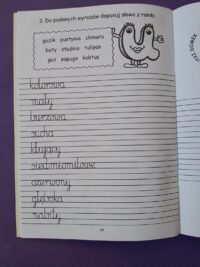 3. Do podanych wyrazów dopasuj słowa z ramki.
guzik pustynia chmura
buty studnia tulipan
gwz papuga kaktus
kolorowa
mały
burzowa
sucha
kłujący
siedmiomilowe
czerwony
głęboka